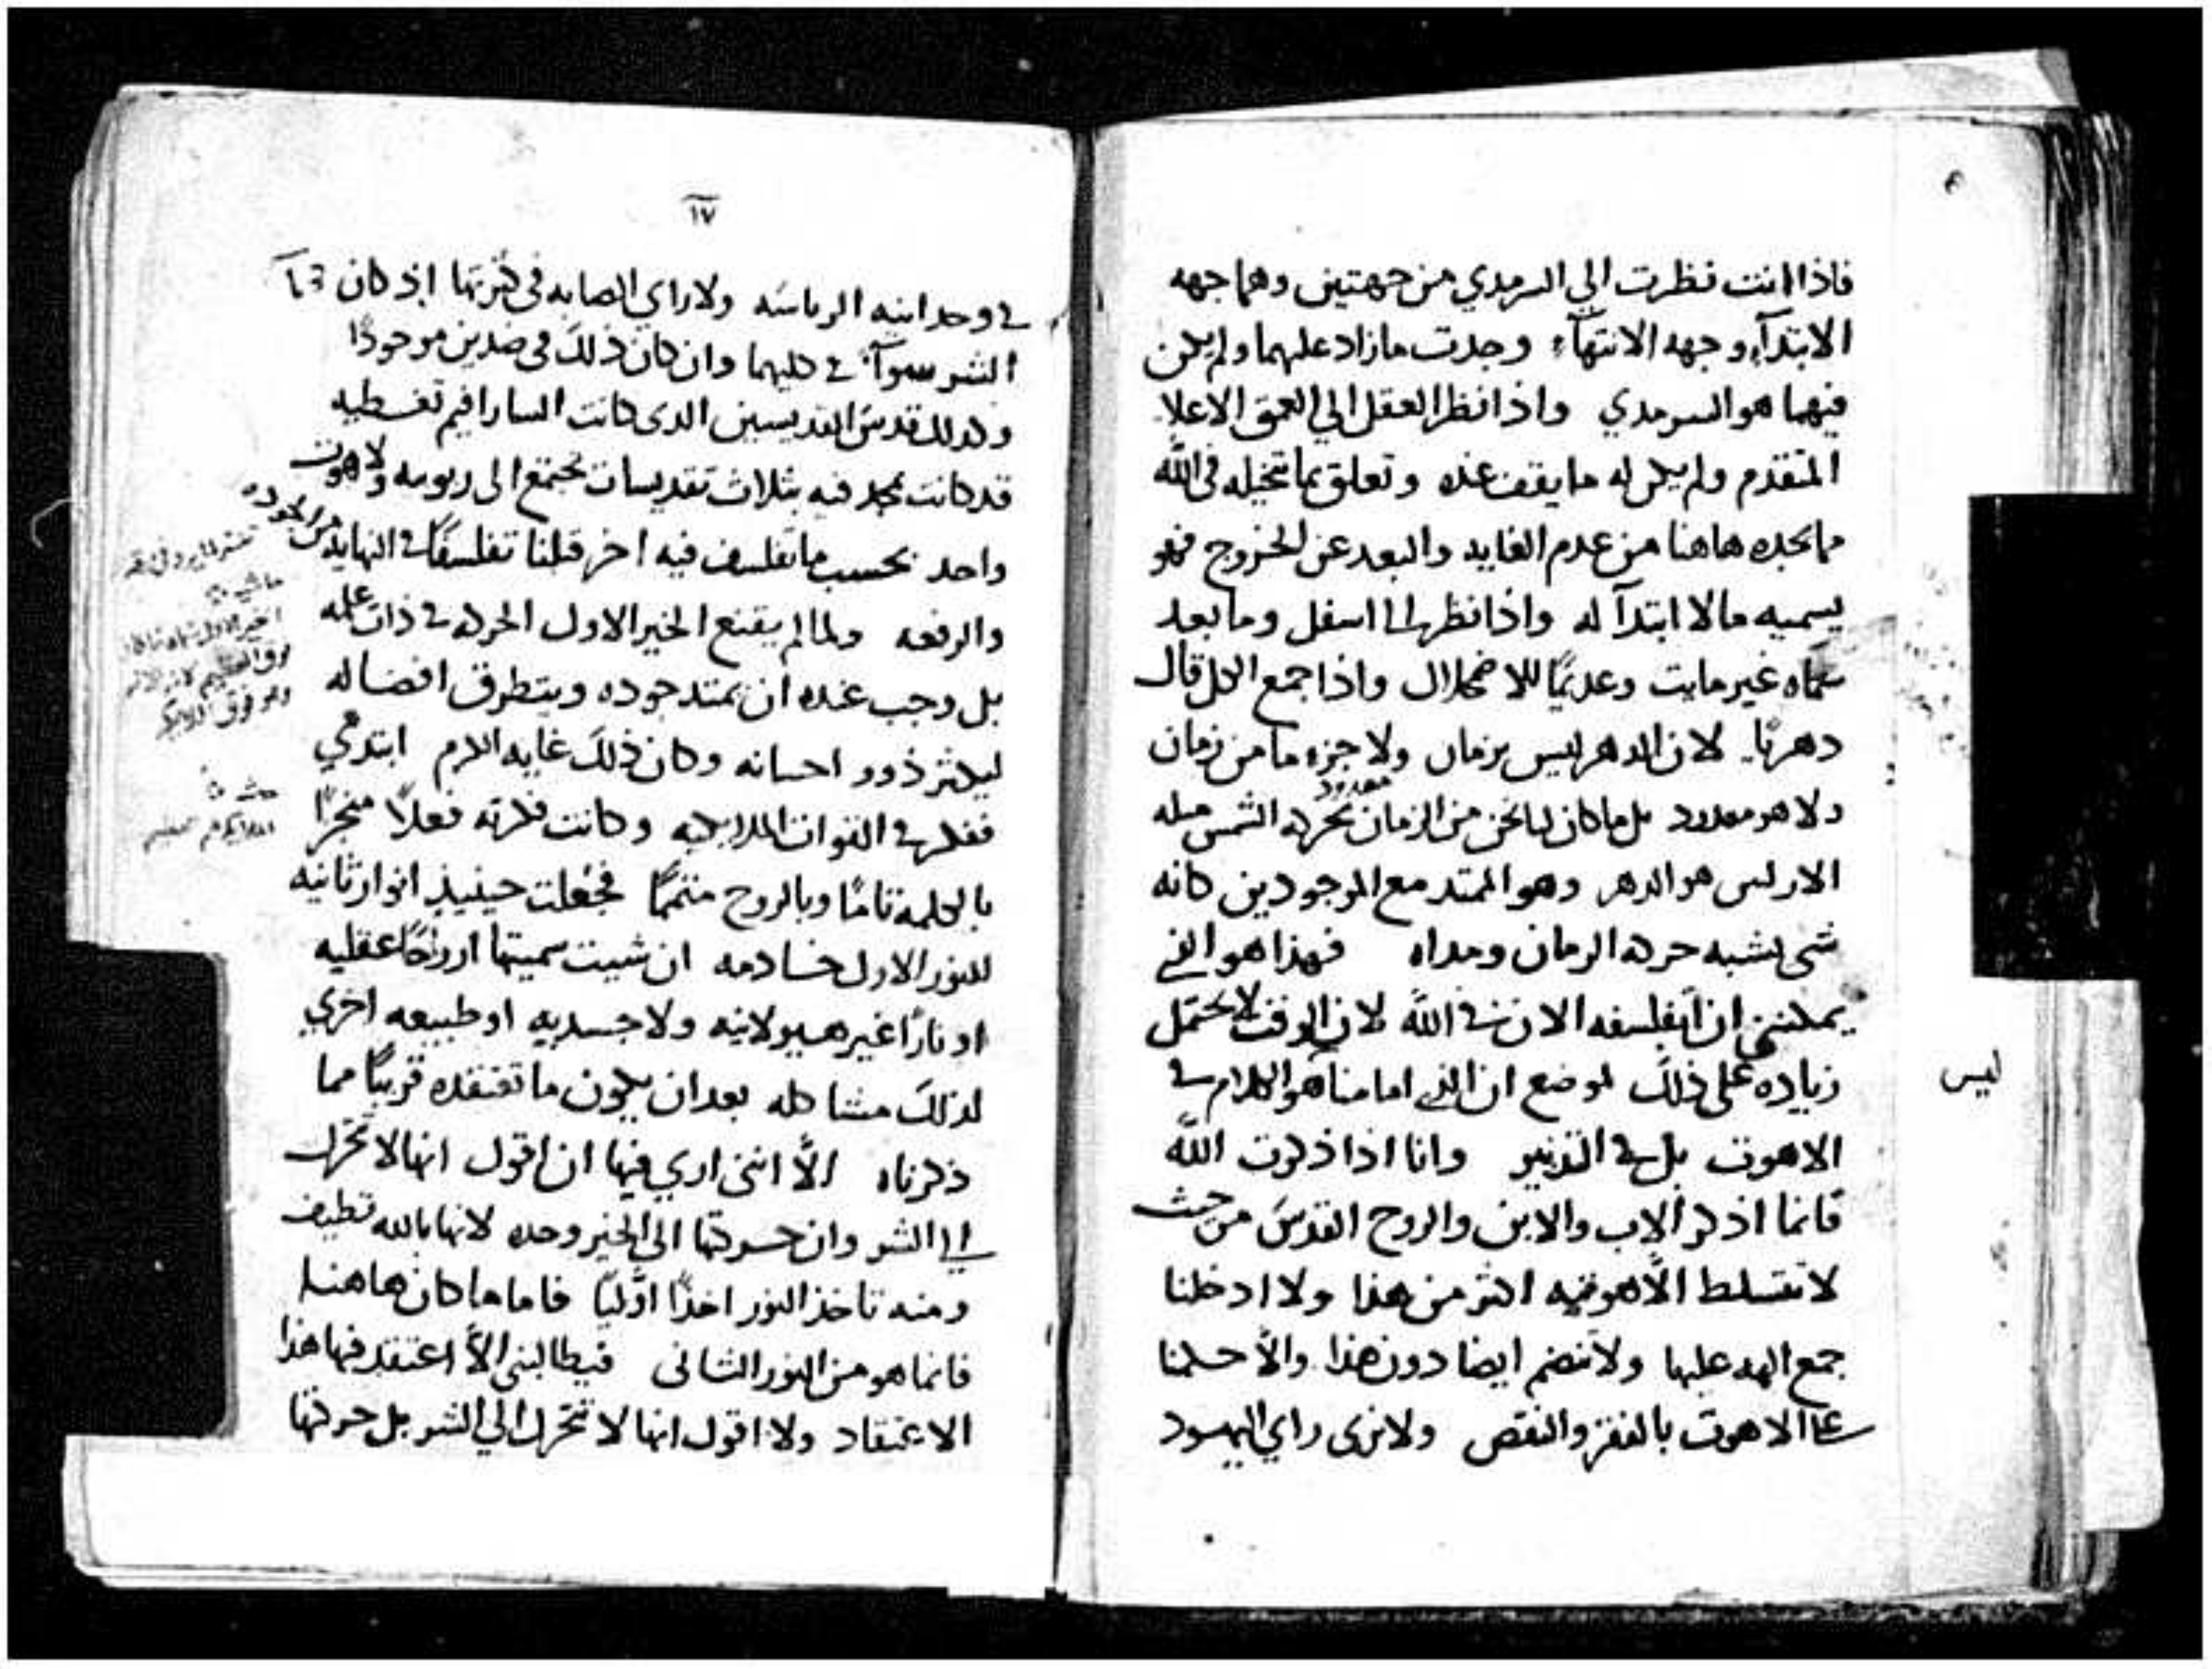 فاذا انت نظرت الي السرمدي من جهتين وهما جهه
الابتدآء وجهه الانتهآء وجدت ما زاد عليهما ولم يكن
فيهما هو السرمدي واذا نظر العقل الي العمق الاعلا
المتقدم ولم يكن له ما يقف عنده وتعلق بما تخيله في الله
مما يجده هاهنا من عدم الغايه والبعد عن الخروج فهو
يسميه ما لا ابتدآ له واذا نظر الى اسفل وما بعد
سمّاه غير مايت وعديمًا للاضمحلال واذا جمع الكل قال
دهريًا لان الدهر ليس بزمان ولا جزء ما من زمان
ولا هو معدود بل ما كان لنا نحن من الزمان بحركه الشمس
معدود
الدهر وهو الممتد مع الموجودين كانه
شي يشبه حركه الزمان ومداه فهذا هو الذي
يمكنني ان اتفلسفه الان في الله لان الوقت لا يحتمل
زياده على ذلك لموضع ان الذي امامنا هو الكلام في
ليس
الاهوت بل في التدبير وانا اذا ذكرت الله
فانما اذكر الاب والابن والروح القدس من حيث
لا تنبسط الاهوتيه اكثر من هذا ولا ادخلنا
جمع الهه عليها ولا تنضم ايضا دون هذا والّا حكمنا
على الاهوت بالفقر والنقص ولا نرى راي اليهود
١٧
في وحدانيه الرياسه ولا راي الصابه في كثرتها اذ كان
الشر سوآء في كليهما وان كان ذلك في ضدين موجودًا
وكذلك قدس القديسين الذى كانت السارافيم تغطيه
قد كانت تمجد فيه بثلاث تقديسات تجتمع الى ربوبيه ولاهوت
واحد بحسب ما تفلسف فيه اخر قبلنا تفلسفًا في النهايه من الجوده
والرفعه ولما لم يقنع الخير الاول الحركه في ذات علمه
بل وجب عنده ان يمتد جوده ويتطرق افضاله
ليكثر ذوو احسانه وكان ذلك غايه الكرم ابتدى
ففكر في القوات الملايكيه وكانت فكرته فعلًا منجزًا
بالكلمه تامًا وبالروح متممًا فجعلت حينيذٍ انوار ثانيه
للنور الاول خادمه ان شيت سميتها ارواحًا عقليه
او نارًا غير هيولانيه ولا جسديه او طبيعه اخري
لذلك مشاكله بعد ان يكون ما تعتقده قريبًا مما
ذكرناه الّا انني اري فيها ان اقول انها لا تتحرك
الى الشر وان حركتها الى الخير وحده لانها بالله تطيف
ومنه تاخذ النور اخذًا اوليًا فاما ما كان هاهنا
فانما هو من النور الثانى فيطالبني الّا اعتقد فيها هذا
الاعتقاد ولا اقول انها لا تتحرك الي الشر بل حركتها